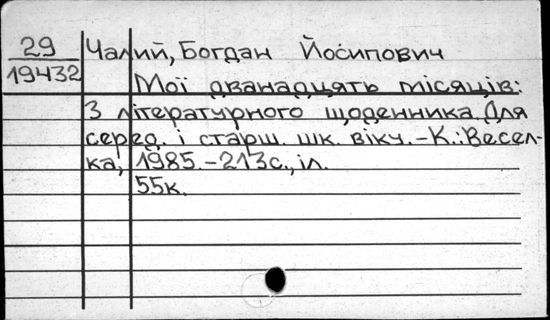 29 Чалий, Богдан Йосипович
19432
Мої дванадцять місяців:
З літературного щоденника. Для
серед. і старш. шк. віку. -К.: Весел-
ка, 1985. -213с., іл.
55к.